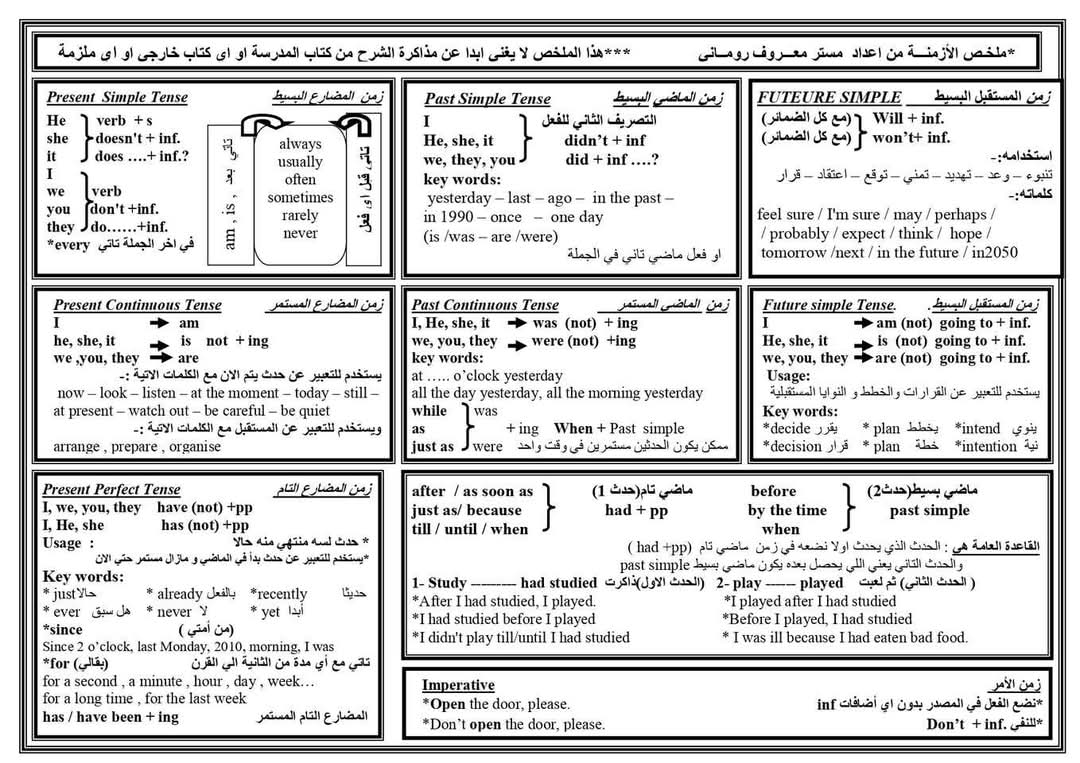 *ملخـص الأزمنـــة من اعداد مستر معــروف رومــانى ***هذا الملخص لا يغنى ابدا عن مذاكرة الشرح من كتاب المدرسة او اى كتاب خارجى او اى ملزمة
Present Simple Tense زمن المضارع البسيط
He verb + s
she doesn't + inf.
it does ….+ inf.?
I
we verb
you don't +inf.
they do……+inf.
*every في اخر الجملة تاتي
am , is , تاتي بعد
always
usually
often
sometimes
rarely
never
تاتى قبل اى فعل
Past Simple Tense زمن الماضي البسيط
I التصريف الثاني للفعل
He, she, it didn't + inf
we, they, you did + inf ….?
key words:
yesterday – last – ago – in the past –
in 1990 – once – one day
(is /was – are /were)
او فعل ماضي تاني في الجملة
FUTEURE SIMPLE زمن المستقبل البسيط
(مع كل الضمائر) Will + inf.
(مع كل الضمائر) won't+ inf.
استخدامه:-
تنبوء – وعد – تهديد – تمني – توقع – اعتقاد – قرار
كلماته:-
feel sure / I'm sure / may / perhaps /
/ probably / expect / think / hope /
tomorrow /next / in the future / in2050
Present Continuous Tense زمن المضارع المستمر
I am
he, she, it is not + ing
we ,you, they are
يستخدم للتعبير عن حدث يتم الان مع الكلمات الاتية :-
now – look – listen – at the moment – today – still –
at present – watch out – be careful – be quiet
ويستخدم للتعبير عن المستقبل مع الكلمات الاتية :-
arrange , prepare , organise
Past Continuous Tense زمن الماضي المستمر
I, He, she, it was (not) + ing
we, you, they were (not) +ing
key words:
at ….. o'clock yesterday
all the day yesterday, all the morning yesterday
while was
as + ing When + Past simple
just as were ممكن يكون الحدثين مستمرين في وقت واحد
Future simple Tense. زمن المستقبل البسيط.
I am (not) going to + inf.
He, she, it is (not) going to + inf.
we, you, they are (not) going to + inf.
Usage:
يستخدم للتعبير عن القرارات والخطط و النوايا المستقبلية
Key words:
*decide يقرر * plan يخطط *intend ينوي
*decision قرار * plan خطة *intention نية
Present Perfect Tense زمن المضارع التام
I, we, you, they have (not) +pp
I, He, she has (not) +pp
Usage : * حدث لسه منتهي منه حالا
*يستخدم للتعبير عن حدث بدأ في الماضي و مازال مستمر حتي الان
Key words:
* just حالا * already بالفعل *recently حديثا
* ever هل سبق * never لا * yet أبدا
*since (من أمتي )
Since 2 o'clock, last Monday, 2010, morning, I was
*for (بقالي) تاتي مع أي مدة من الثانية الي القرن
for a second , a minute , hour , day , week…
for a long time , for the last week
has / have been + ing المضارع التام المستمر
after / as soon as ماضي تام(حدث 1) before ماضي بسيط(حدث2)
just as/ because had + pp by the time past simple
till / until / when when
القاعدة العامة هي : الحدث الذي يحدث اولا نضعه في زمن ماضي تام (had +pp )
والحدث التاني يعني اللي يحصل بعده يكون ماضي بسيط past simple
1- Study --------- had studied (الحدث الاول)ذاكرت 2- play ------ played ( الحدث الثاني) ثم لعبت
*After I had studied, I played. *I played after I had studied
*I had studied before I played *Before I played, I had studied
*I didn't play till/until I had studied * I was ill because I had eaten bad food.
Imperative زمن الأمر
*Open the door, please. *نضع الفعل في المصدر بدون اي أضافات inf
*Don't open the door, please. *للنفي Don't + inf.